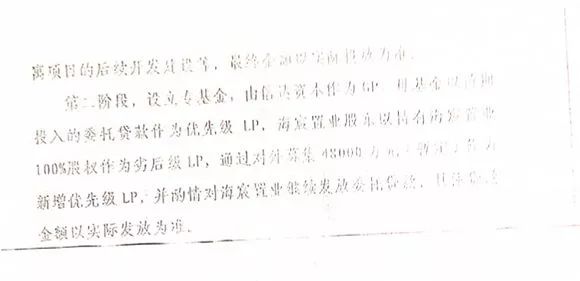 寓项目的后续开发建设等，最终金额以实际投放为准。
第二阶段，设立专基金，由信达资本作为GP，用基金以前期
投入的委托贷款作为优先级 LP，海宸置业股东以持有海宸置业
100%股权作为劣后级LP，通过对外募集48000万元（暂定）作为
新增优先级 LP，并酌情对海宸置业继续发放委托贷款，具体
金额以实际发放为准。